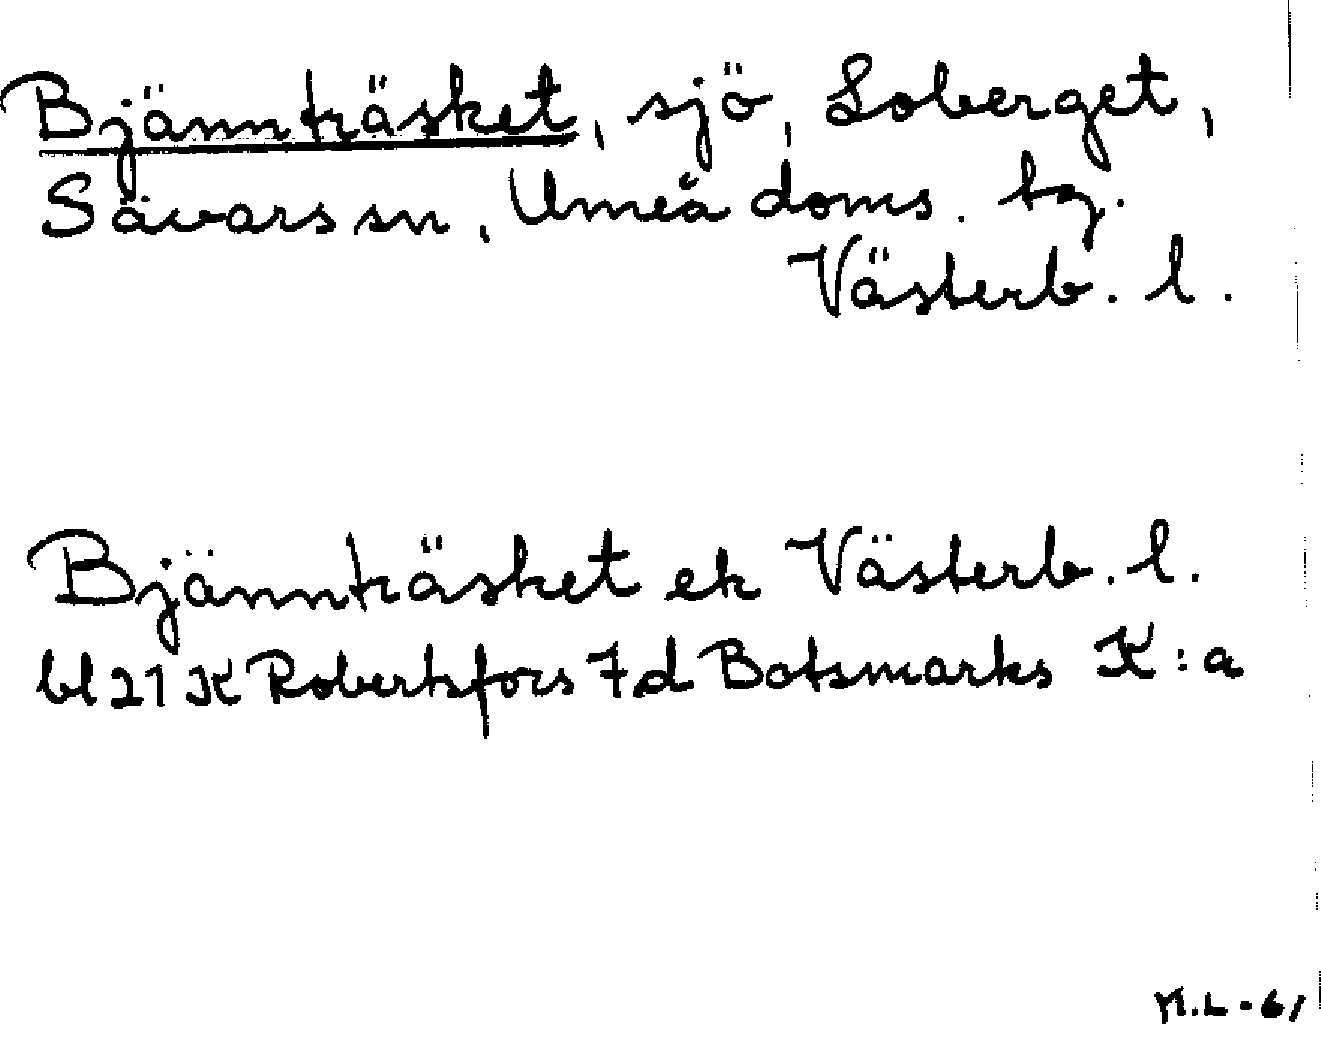 Bjännträsket, sjö, Loberget,
Sävars sn, Umeå doms. tg.
Västerb. l.
Bjännträsket ek Västerb. l.
bl 21 K Robertsfors 7d Botsmarks K:a
M.L - 61